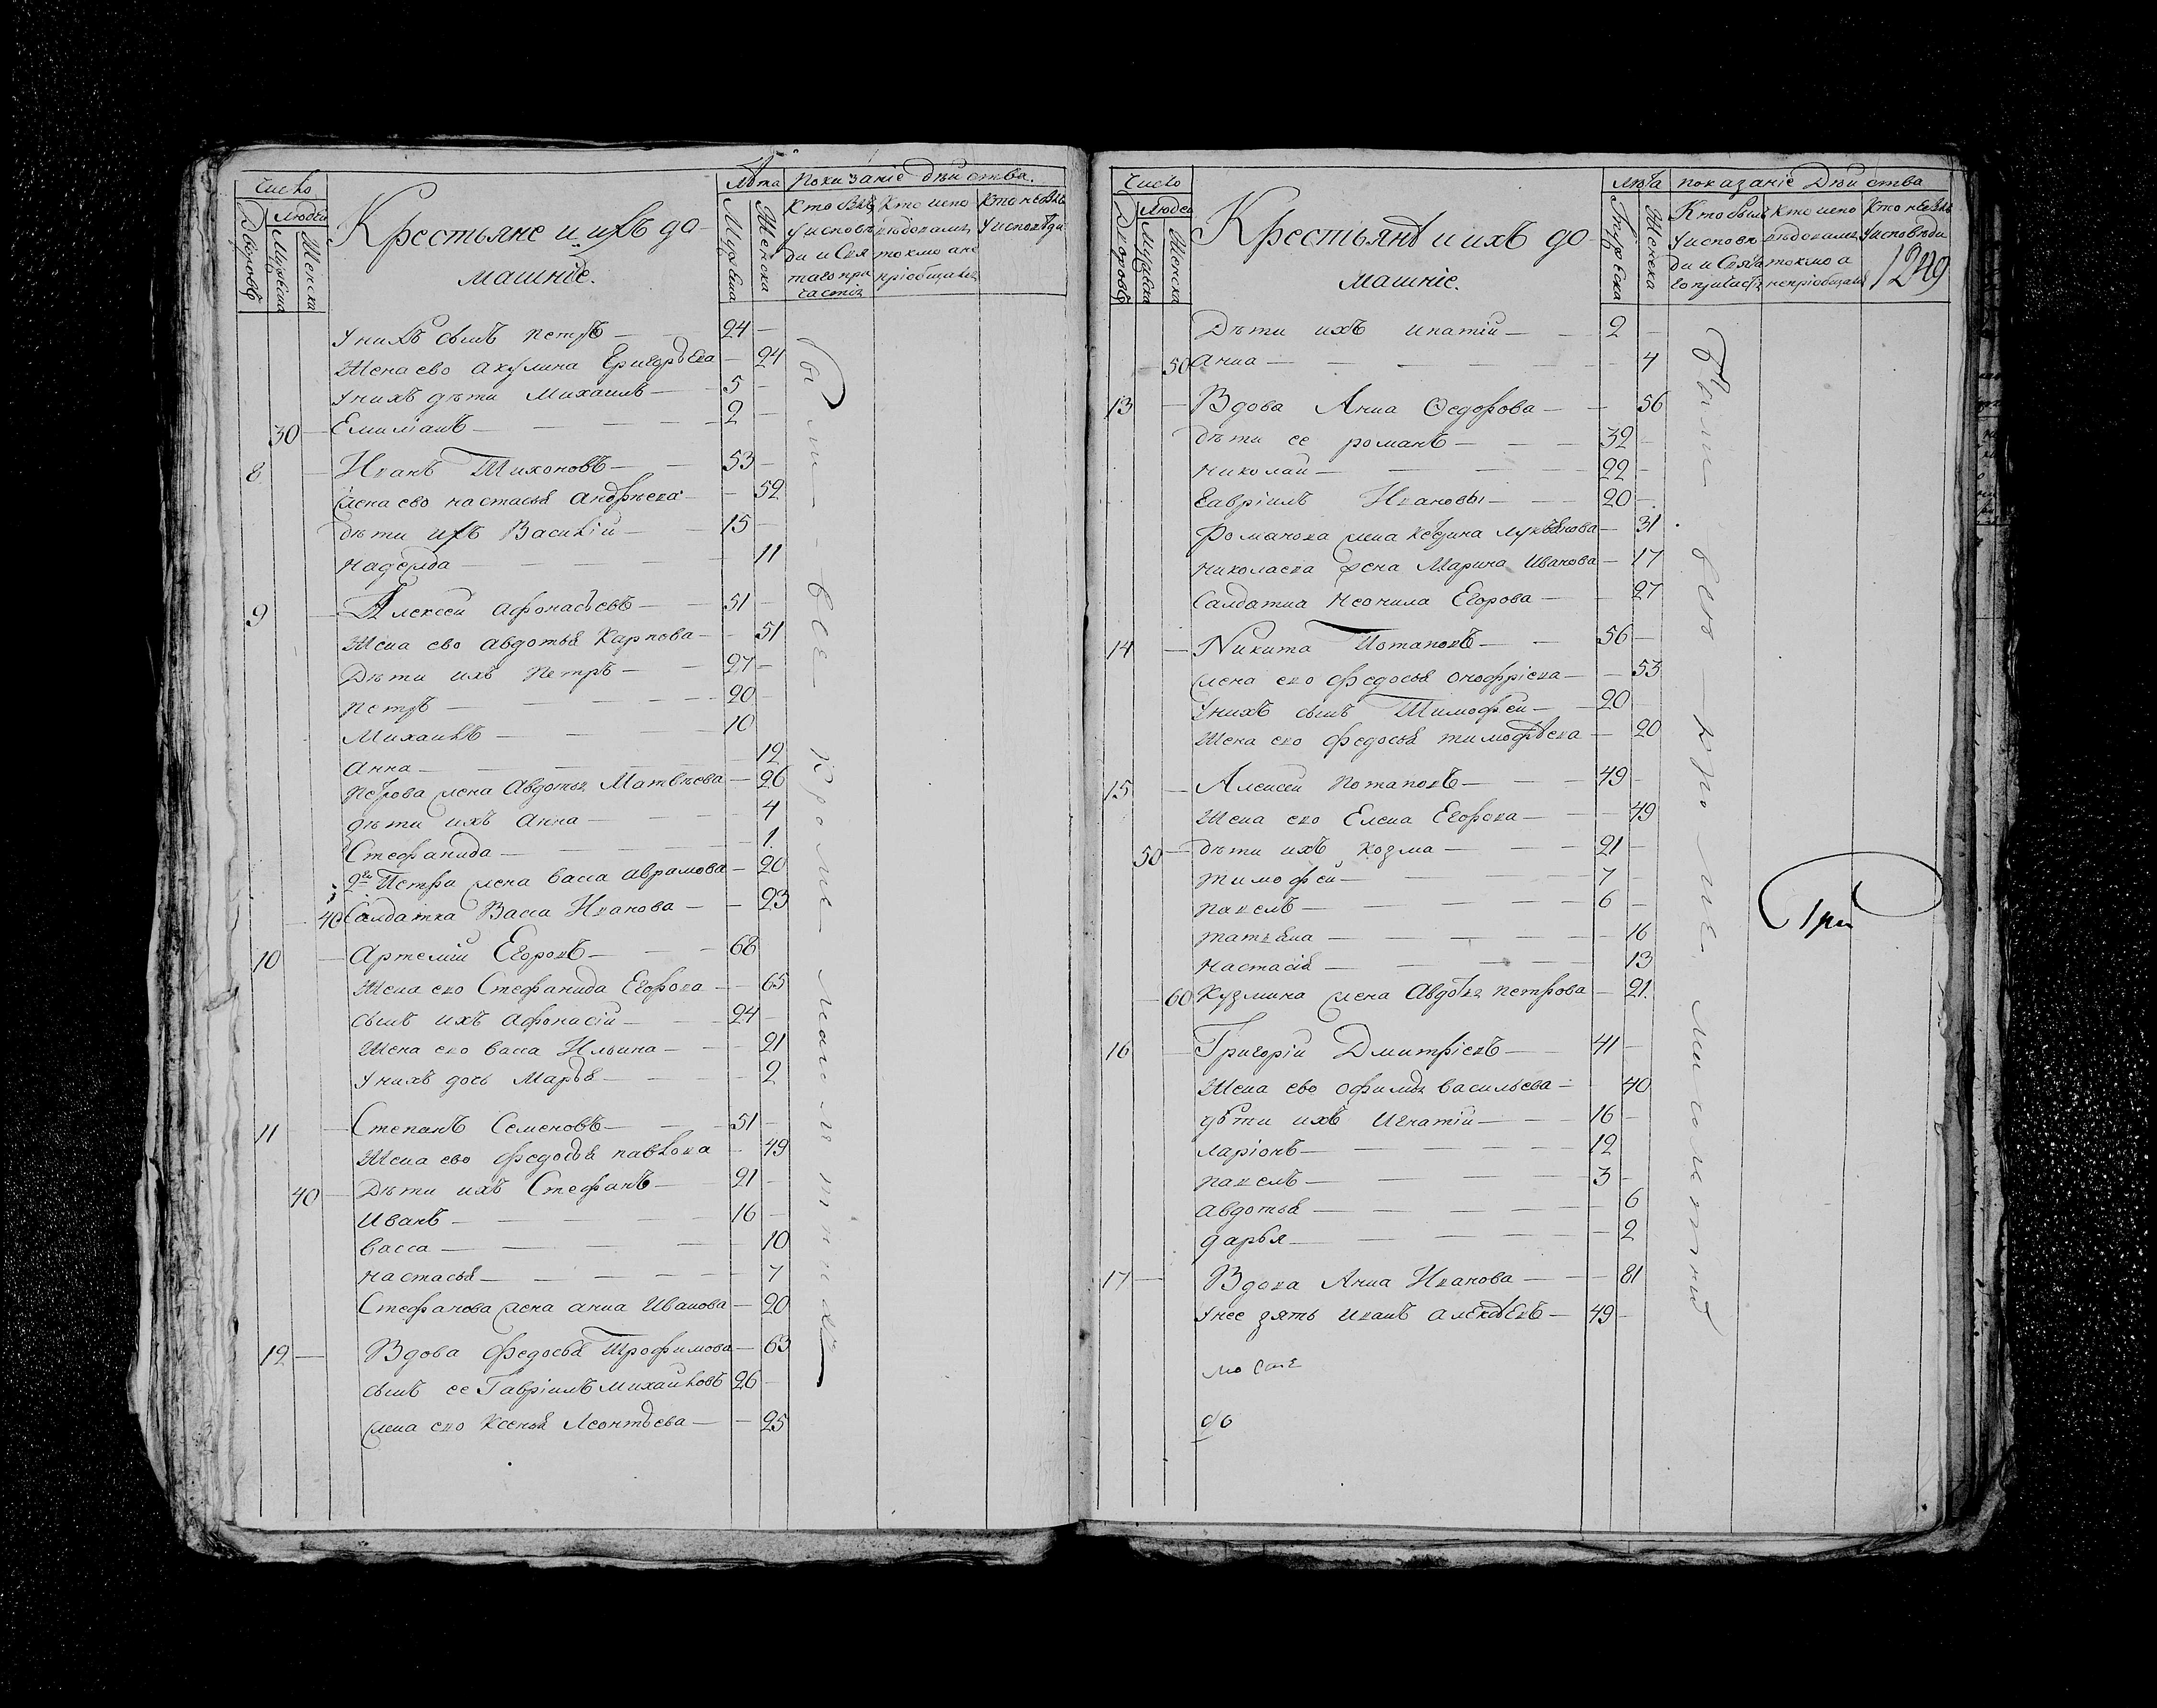 Число
Людей
Дворовъ
Мужеска
Женска
Крестьяне и ихъ до-
машніе.
Лѣта
Мужеска
Женска
Показаніе дѣйства.
Кто былъ у исповѣди и свя таго при частія
Кто испо вѣдовалис токмо а не пріобщались
Кто не былъ у исповѣди
У нихъ сынъ петръ — 24 —
Жена ево акулина Григорьева — 24
У нихъ дѣти Михаилъ — 5 —
30 — Емиліанъ — 2 —
8 — Иванъ Тихоновъ — 53 —
Жена ево настасья андрѣева — 52
дѣти ихъ Василій — 15 —
надежда — 11
9 — Алексей афонасьевъ — 51 —
Жена ево авдотья Карпова — 51
Дѣти ихъ Петръ — 27 —
петръ — 20
Михаилъ — 10
Анна — 12
Петрова жена Авдотья Матвѣева — 26
дѣти ихъ анна — 4
Стефанида — 1
2го Петра жена васса аврамова — 20
40 Солдатка Васса Иванова — 23
10 — Артемій Егоровъ — 66
Жена ево Стефанида Егорова — 65
сынъ ихъ афонасій — 24 —
Жена ево васса Ильина — 21
У нихъ дочь Марья — 2
11 — Степанъ Семеновъ — 51 —
Жена ево федосья павлова — 49
40 — Дѣти ихъ Стефанъ — 21 —
иванъ — 16 —
васса — 10
настасья — 7
Стефанова жена анна иванова — 20
12 — Вдова федосья Трофимова — 63
сынъ ее Гавріилъ михайловъ 26 —
жена ево Ксенья Леонтьева — 25
были — всѣ — кроме — малолѣтнихъ
Число
Людей
Дворовъ
Мужеска
Женска
Крестьянѣ и ихъ до-
машніе.
Лѣта
Мужеска
Женска
показаніе Дѣйства
Кто былъ у исповѣ ди и свята го причастія
Кто испо вѣдовалис токмо а непріобщались
Кто не былъ у исповѣди
1249
Дѣти ихъ ипатій — 2 —
50 анна — 4
13 — Вдова Анна Ѳедорова — 56
дѣти ее романъ — 32 —
николай — 22 —
гавріилъ Ивановы — 20 —
Романова жена лукьянова — 31
николаева жена Марина иванова — 17
Салдатка Неонила Егорова — 27
14 — Никита Потаповъ — 56 —
жена ево федосья онофріева — 53
У нихъ сынъ Тимофей — 20
Жена ево федосья тимофѣева — 20
15 — Алексей Потаповъ — 49 —
Жена ево Елена Егорова — 49
50 — дѣти ихъ козма — 21 —
тимофей — 7 —
павелъ — 6 —
татьяна — 16
настасія — 13
60 кузмина жена Авдотья петрова — 21
16 — Григорій Дмитріевъ — 41 —
Жена ево офимья васильева — 40
дѣти ихъ игнатій — 16 —
ларіонъ — 12
павелъ — 3 —
авдотья — 6
дарья — 2
17 — Вдова Анна Иванова — 81
У нее зять иванъ алексѣевъ — 49 —
были — всѣ — кроме малолѣтнихъ